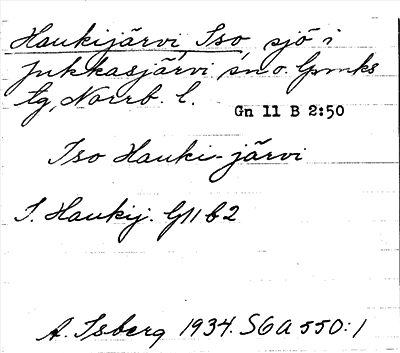 Haukijärvi, Iso, sjö i
Jukkasjärvi sn o. lpmks
tg, Norrb. l.
Gn 11 B 2:50
Iso Hauki-järvi
I. Haukij. G11 b2
A. Isberg 1934. SGA 550:1